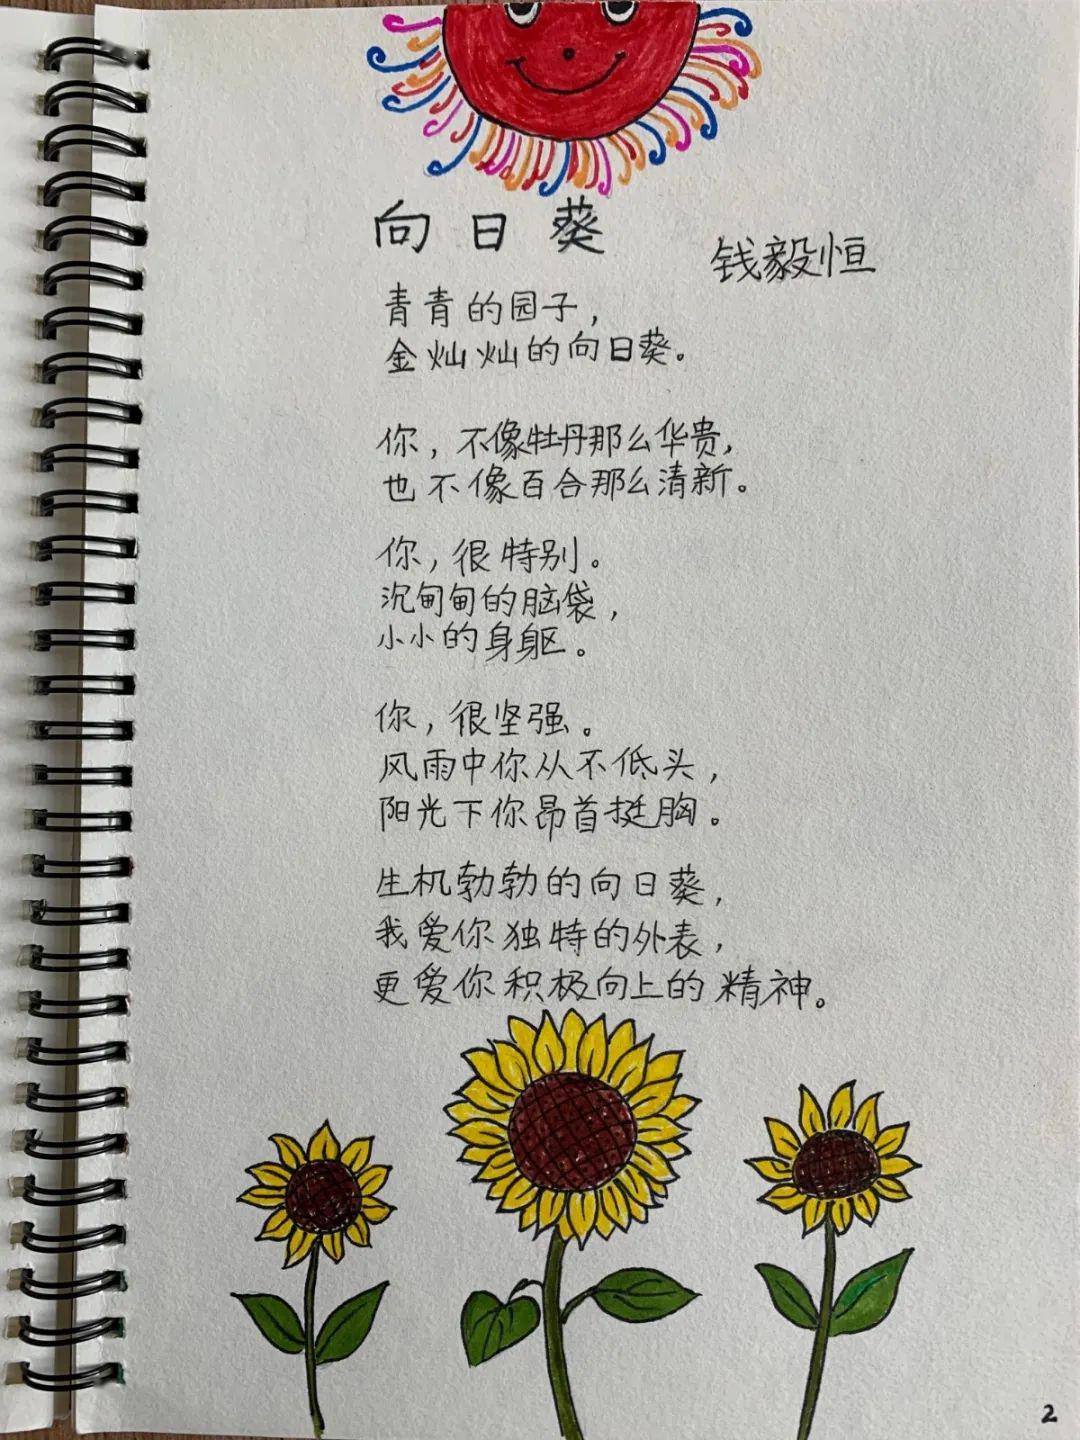 向日葵
钱毅恒
青青的园子，
金灿灿的向日葵。
你，不像牡丹那么华贵，
也不像百合那么清新。
你，很特别。
沉甸甸的脑袋，
小小的身躯。
你，很坚强。
风雨中你从不低头，
阳光下你昂首挺胸。
生机勃勃的向日葵，
我爱你独特的外表，
更爱你积极向上的精神。
2